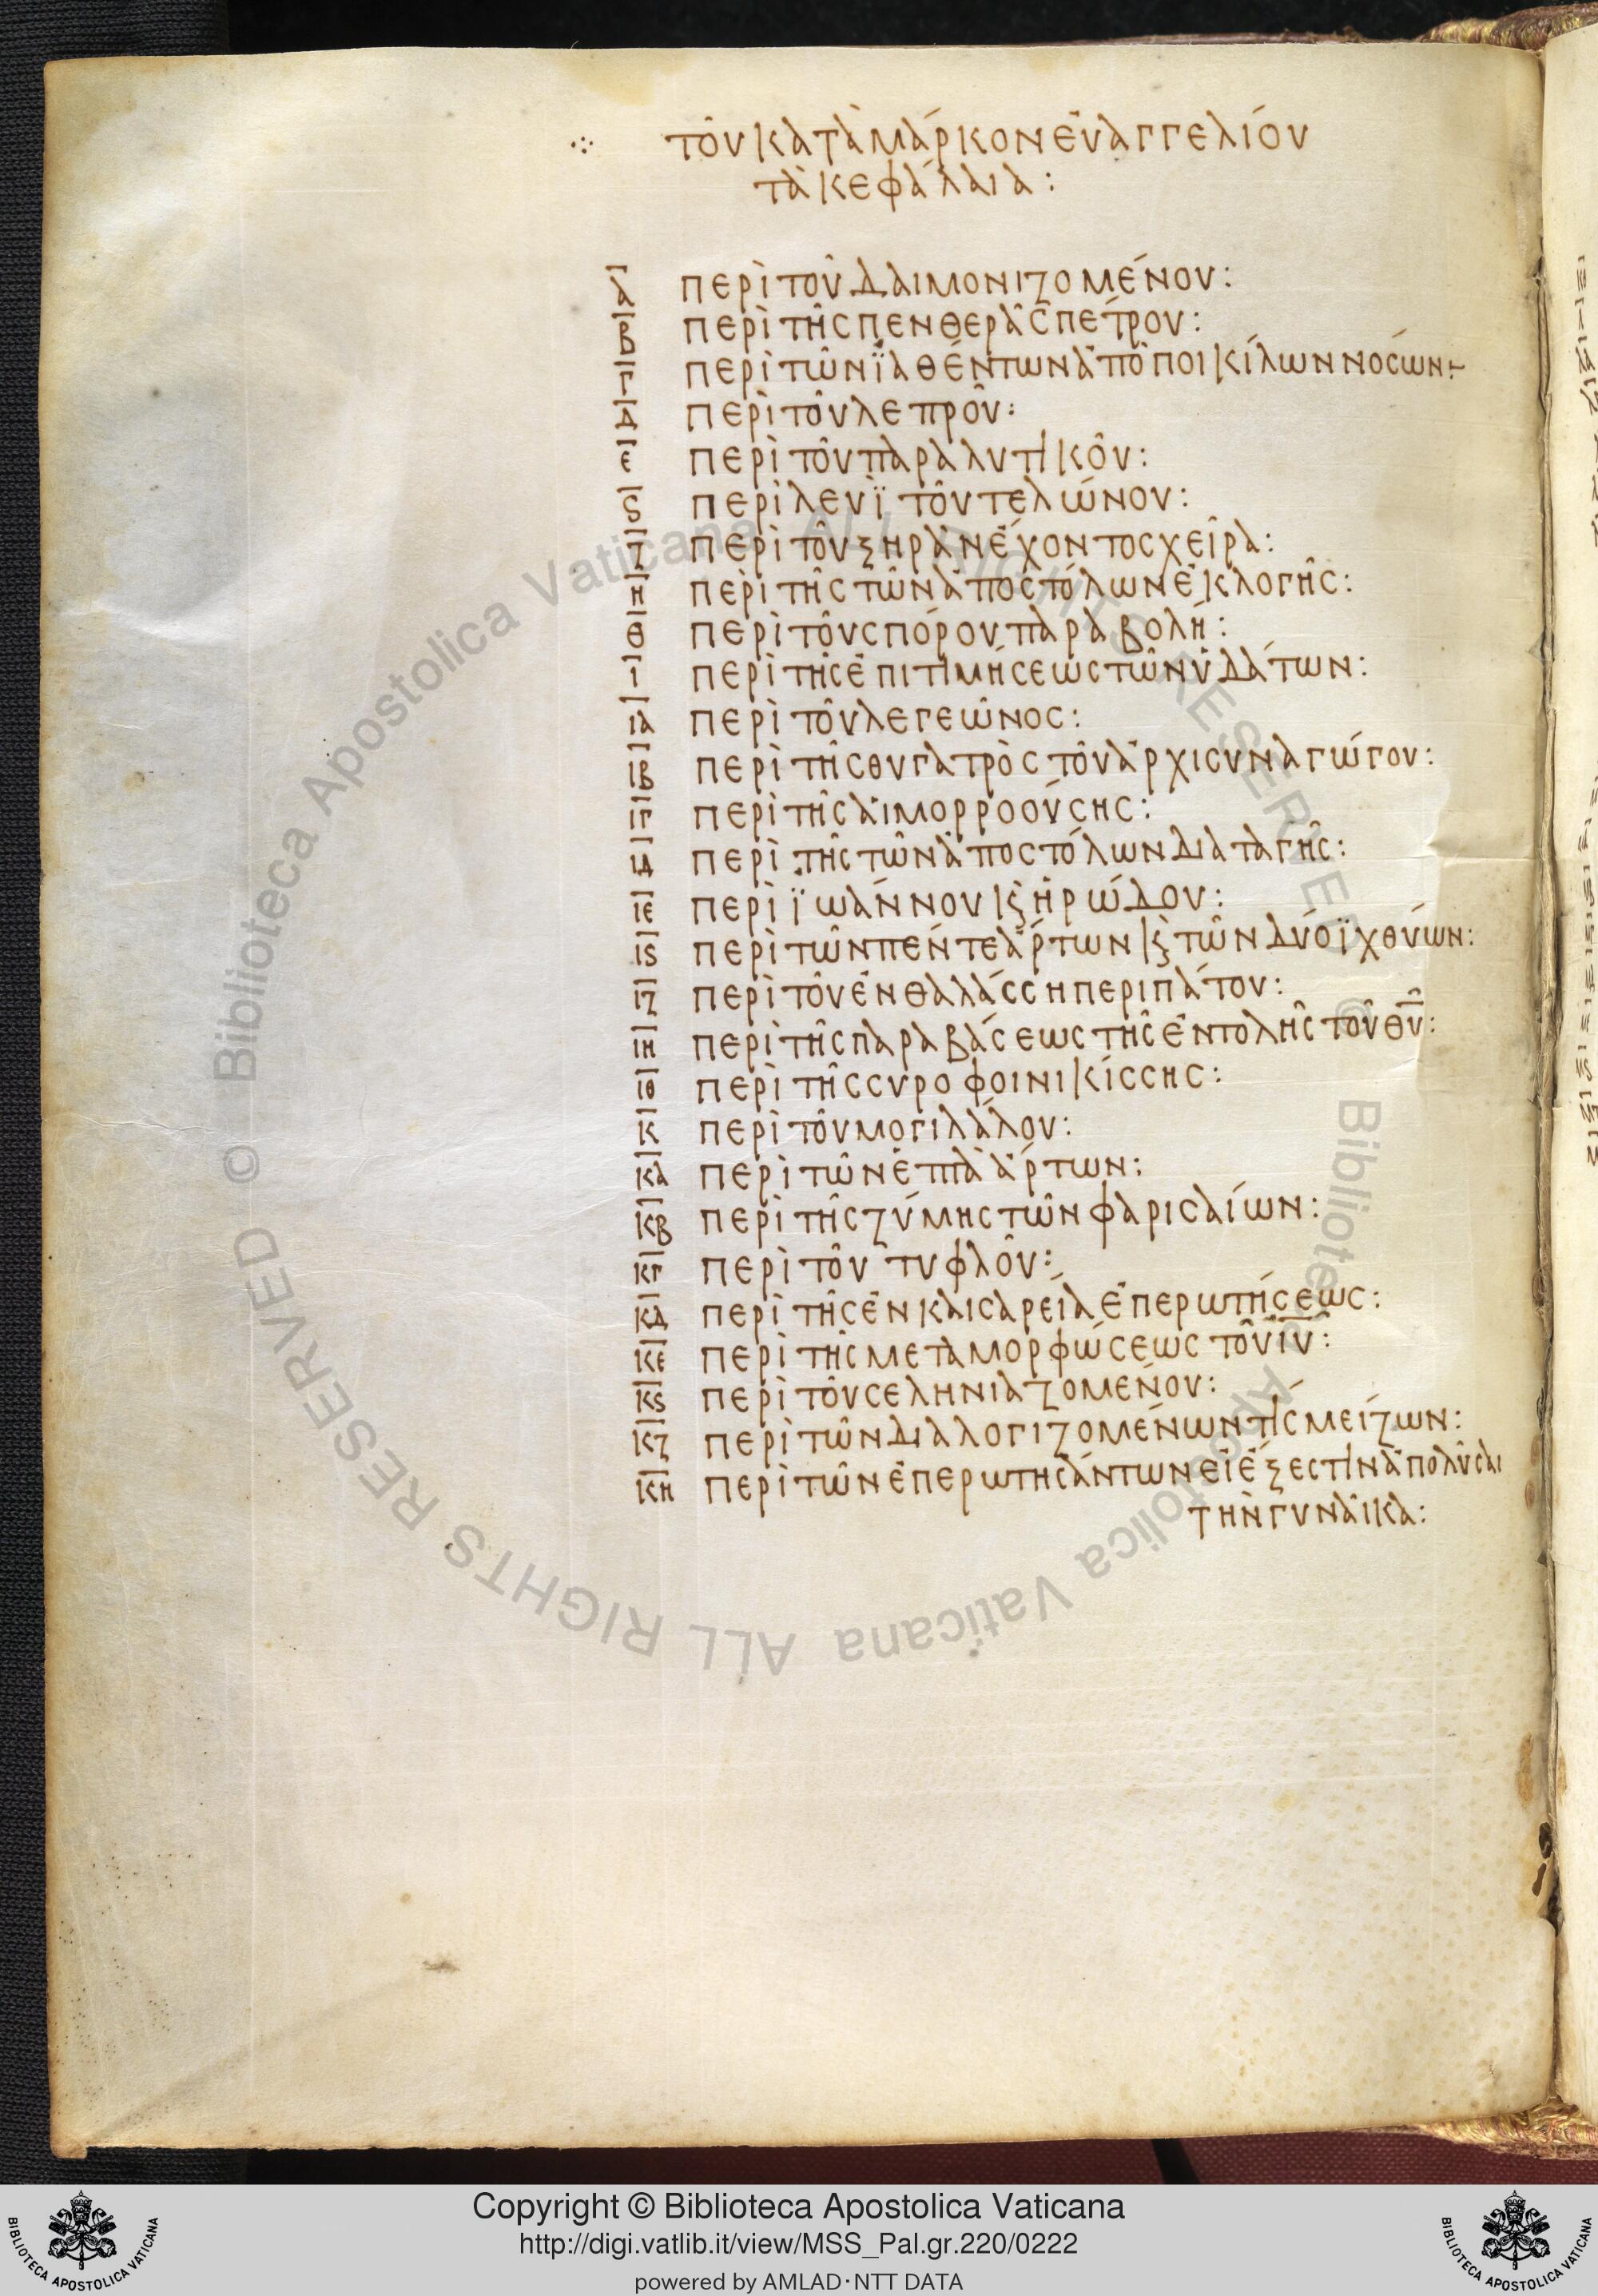 τοῦ κατὰ μάρκον ἐυαγγελίου
τὰ κεφάλαια:
α περὶ τοῦ δαιμονιζομένου:
β περὶ τῆς πενθερᾶς πέτρου:
γ περὶ τῶν ἰαθέντων ἀπὸ ποικίλων νοσων:
δ περὶ τοῦ λεπροῦ:
ε περὶ τοῦ παραλυτικοῦ:
ϛ περὶ λευὶ τοῦ τελώνου:
ζ περὶ τοῦ ξηρὰν ἔχοντος χεῖρα:
η περὶ τῆς τῶν ἀποστόλων ἐκλογῆς:
θ περὶ τοῦ σπόρου παραβολή:
ι περὶ τῆς ἐπιτιμήσεως τῶν ὑδάτων:
ια περὶ τοῦ λεγεῶνος:
ιβ περὶ τῆς θυγατρὸς τοῦ ἀρχισυναγώγου:
ιγ περὶ τῆς αἱμορροούσης:
ιδ περὶ τῆς τῶν ἀποστόλων διαταγῆς:
ιε περὶ ϊωάννου ϗ ἡρώδου:
ιϛ περὶ τῶν πέντε ἄρτων ϗ τῶν δύο ϊχθύων:
ιζ περὶ τοῦ ἐν θαλάσση περιπάτου:
ιη περὶ τῆς παραβάσεως τῆς ἐντολῆς τοῦ θυ:
ιθ περὶ τῆς συροφοινικίσσης:
κ περὶ τοῦ μογιλάλου:
κα περὶ τῶν ἑπτὰ ἄρτων:
κβ περὶ τῆς ζύμης τῶν φαρισαίων:
κγ περὶ τοῦ τυφλοῦ:
κδ περὶ τῆς ἐν καισαρεία ἐπερωτήσεως:
κε περὶ τῆς μεταμορφώσεως τοῦ ιυ:
κϛ περὶ τοῦ σεληνιαζομένου:
κζ περὶ τῶν διαλογιζομένων τίς μείζων:
κη περὶ τῶν ἐπερωτησάντων εἰ ἔξεστιν ἀπολῦσαι
τὴν γυναῖκα:
© Biblioteca Apostolica Vaticana ALL RIGHTS RESERVED
© Biblioteca Apostolica Vaticana ALL RIGHTS RESERVED
Copyright © Biblioteca Apostolica Vaticana
http://digi.vatlib.it/view/MSS_Pal.gr.220/0222
powered by AMLAD·NTT DATA
BIBLIOTECA APOSTOLICA VATICANA
BIBLIOTECA APOSTOLICA VATICANA